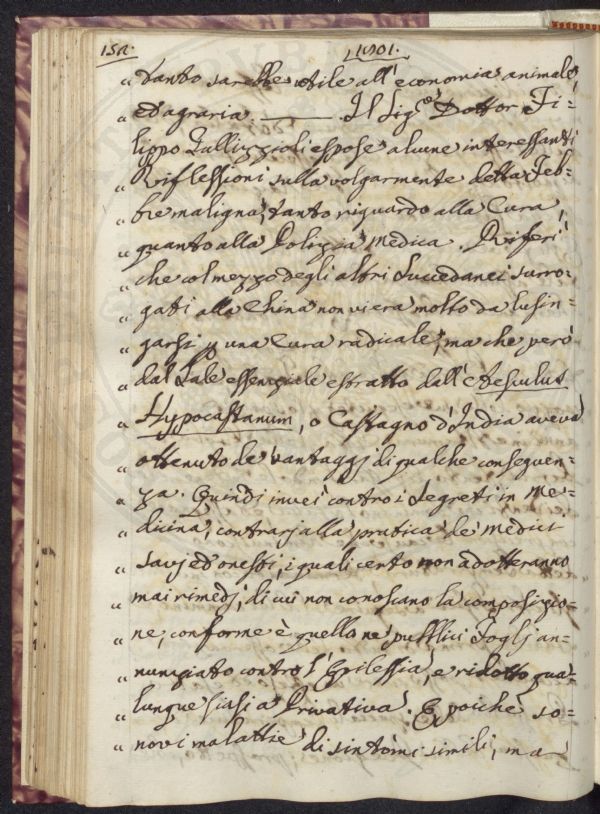 152. 1801.
" tanto sarebbe utile all'economia animale,
" ed agraria. ——— Il Sig.re Dottor Fi=
" lippo Gallizzioli espose alcune interessanti
" Riflessioni sulla volgarmente detta Feb=
" bre maligna, tanto riguardo alla Cura,
" quanto alla Polizia Medica. Riferì
" che col mezzo degli altri Succedanei surro=
" gati alla China non vi era molto da lusin=
" garsi p una Cura radicale, ma che però
" dal Sale essenziale estratto dall'Aesculus
" Hypocastanum, o Castagno d'India aveva
" ottenuto de' vantaggj di qualche conseguen=
" za. Quindi inveì contro i Segreti in Me=
" dicina, contrarj alla pratica de' Medici
" savj ed onesti, i quali certo non adotteranno
" mai rimedj, di cui non conoscano la composizio=
" ne, conforme è quello ne' pubblici Foglj an=
" nunziato contro l'Epilessia, e ridotto qua=
" lunque siasi a Privativa. E poichè so=
" novi malattie di sintomi simili, ma